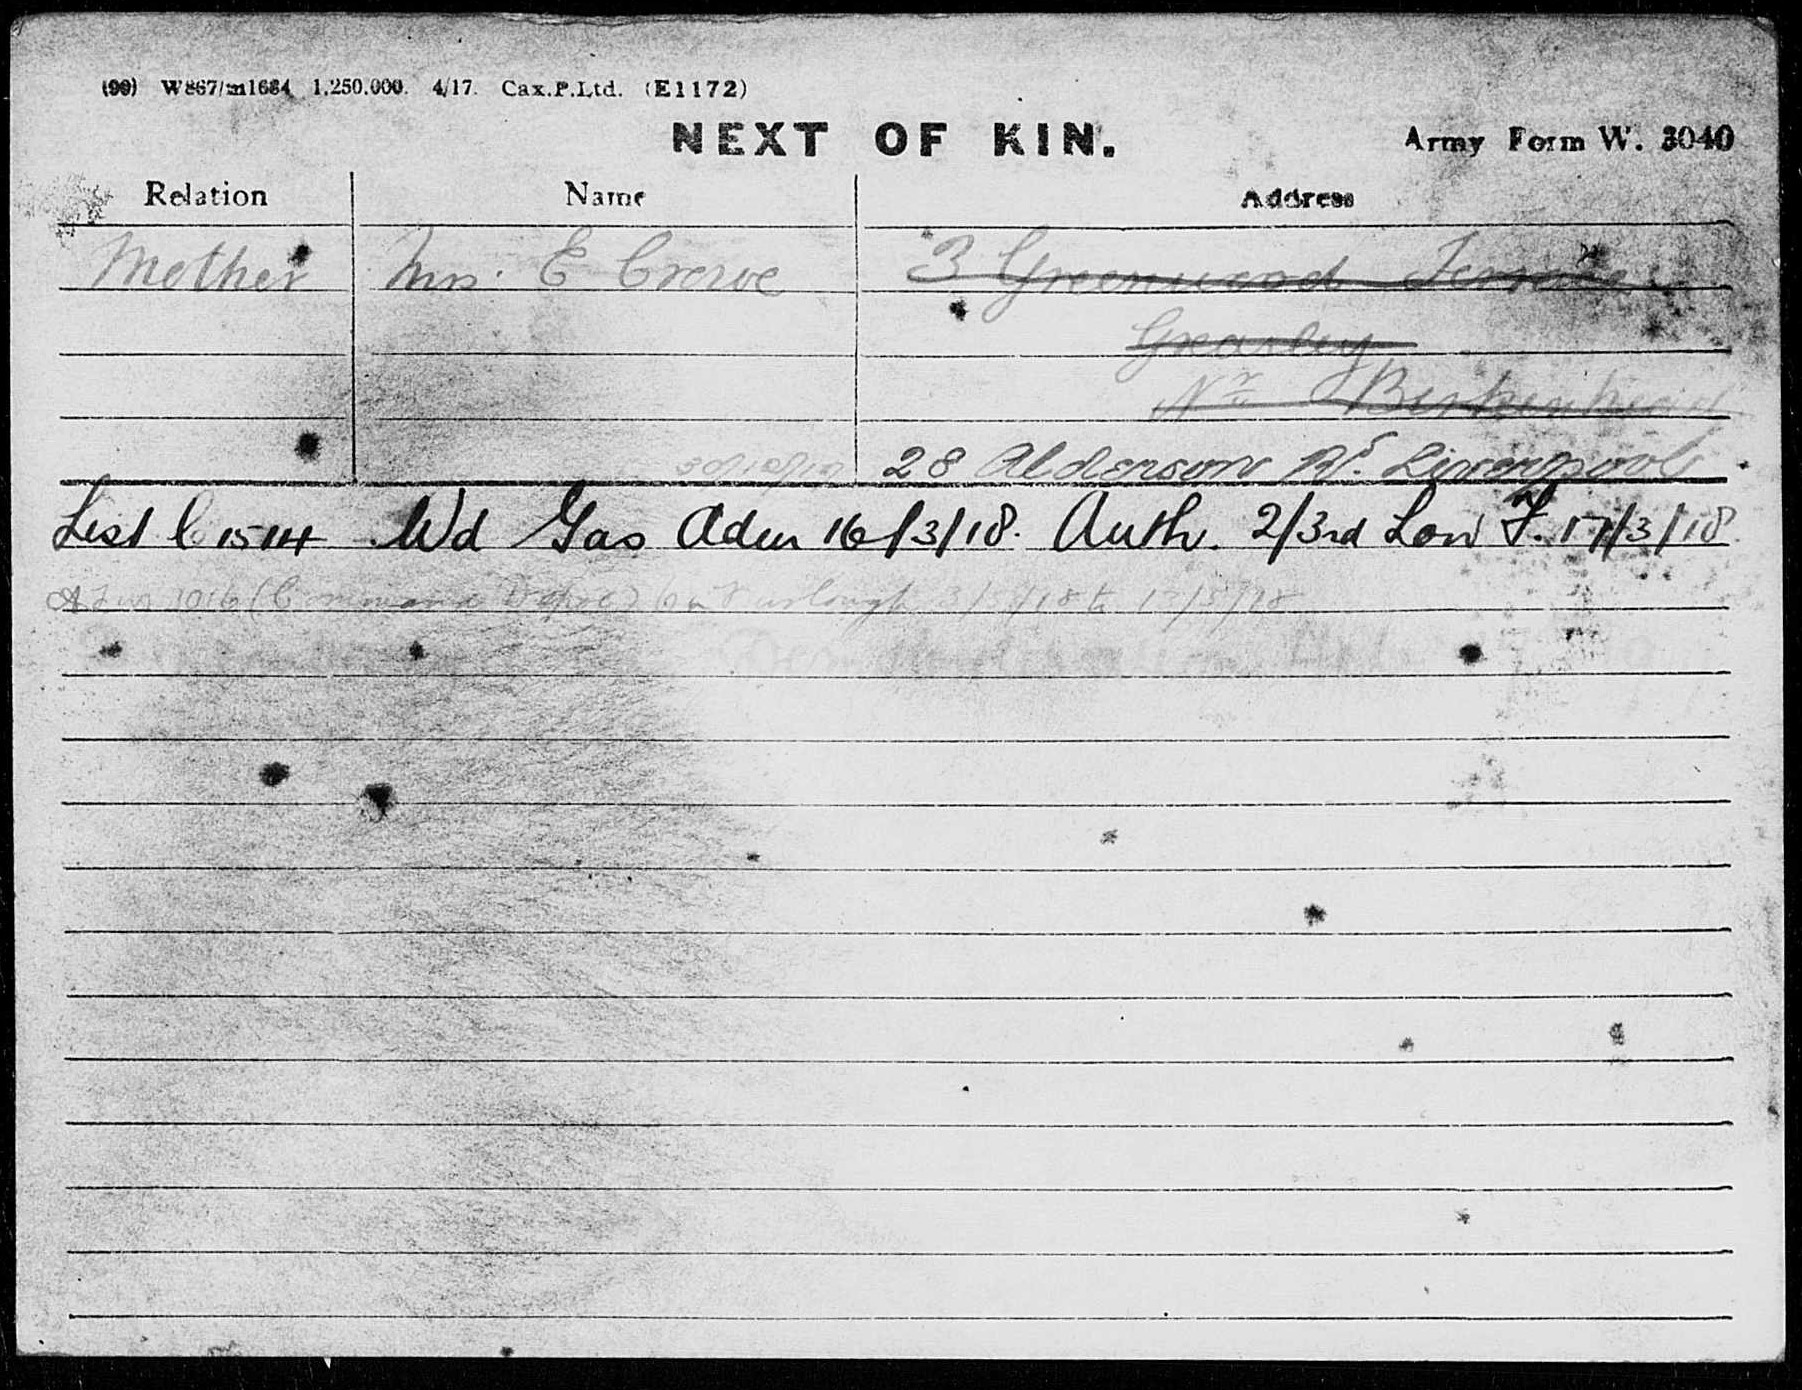 (99) W867/m1684 1,250,000. 4/17. Cax.P.Ltd. (E1172)
NEXT OF KIN.
Army Form W. 3040
Relation Name Address
Mother Mrs. E Crowe 3 Greenwood Terrace
Greasley
Nr Birkenhead
28 Alderson Rd. Liverpool
List C 1514 Wd Gas Adm 16/3/18. Auth. 2/3rd Lon F. 17/3/18.
1016 (Command Depot) on Furlough 3/5/18 to